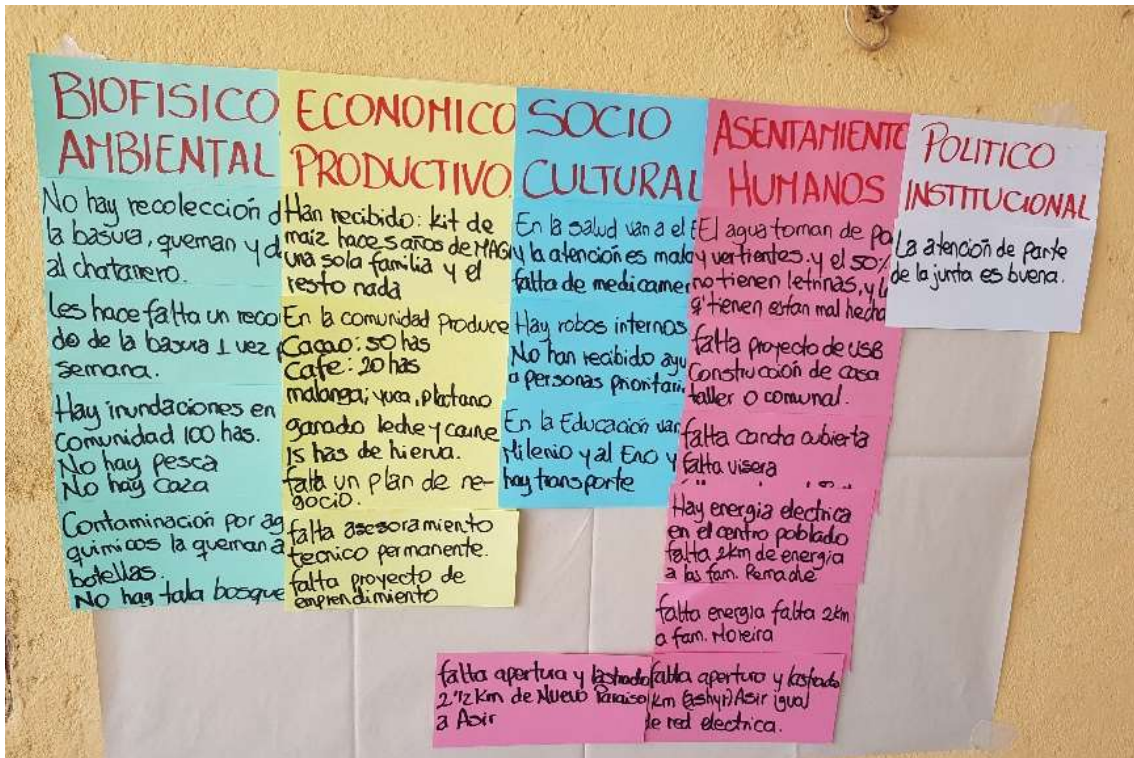 BIOFISICO
AMBIENTAL
No hay recolección d
la basura, queman y d
al chatarrero.
Les hace falta un reco
do de la basura 1 vez
semana.
Hay inundaciones en
Comunidad 100 has.
No hay pesca
No hay caza
Contaminación por ag
quimicos la queman a
botellas.
No hay tala bosque
ECONOMICO
PRODUCTIVO
Han recibido: kit de
maiz hace 5 años de MAG
una sola familia y el
resto nada
En la comunidad Produce
Cacao: 50 has
Cafe: 20 has
malanga, yuca, platano
ganado leche y carne
15 has de hierva.
falta un plan de ne-
gocio.
falta asesoramiento
tecnico permanente.
falta proyecto de
emprendimiento
SOCIO
CULTURAL
En la salud van a el E
y la atención es mala
falta de medicamen
Hay robos internos
No han recibido ayu
a personas prioritari
En la Educación van
Milenio y al Eno y
hay transporte
ASENTAMIENTO
HUMANOS
El agua toman de po
y vertientes. y el 50%
no tienen letrinas, y l
q' tienen estan mal hecha
falta proyecto de USB
Construccion de casa
taller o comunal.
falta cancha cubierta
falta visera
Hay energia electrica
en el centro poblado
falta 2km de energia
a las fam.
falta energia falta 2km
a fam. Moreira
falta apertura y lastrado
2 1/2 Km de Nuevo Paraiso
a Asir
falta apertura y lastrado
km Asir igual
de red electrica.
POLITICO
INSTITUCIONAL
La atención de parte
de la junta es buena.